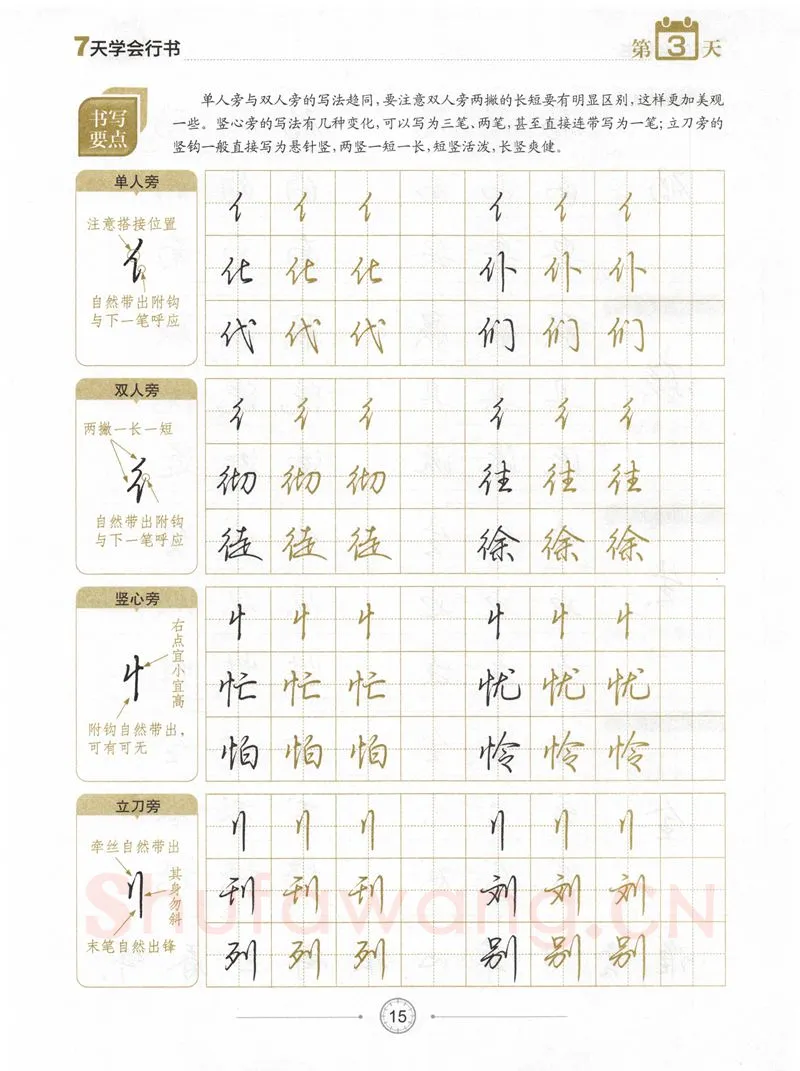 7天学会行书
第3天
书写
要点
单人旁与双人旁的写法趋同，要注意双人旁两撇的长短要有明显区别，这样更加美观
一些。竖心旁的写法有几种变化，可以写为三笔、两笔，甚至直接连带写为一笔；立刀旁的
竖钩一般直接写为悬针竖，两竖一短一长，短竖活泼，长竖爽健。
单人旁
注意搭接位置
亻
自然带出附钩
与下一笔呼应
亻 亻 亻 亻 亻 亻
化 化 化 仆 仆 仆
代 代 代 们 们 们
双人旁
两撇一长一短
彳
自然带出附钩
与下一笔呼应
彳 彳 彳 彳 彳 彳
彻 彻 彻 往 往 往
徒 徒 徒 徐 徐 徐
竖心旁
右点宜小宜高
忄
附钩自然带出，
可有可无
忄 忄 忄 忄 忄 忄
忙 忙 忙 忧 忧 忧
怕 怕 怕 怜 怜 怜
立刀旁
牵丝自然带出
刂
其身勿斜
末笔自然出锋
刂 刂 刂 刂 刂 刂
刊 刊 刊 刘 刘 刘
列 列 列 别 别 别
Shufawang.CN
15